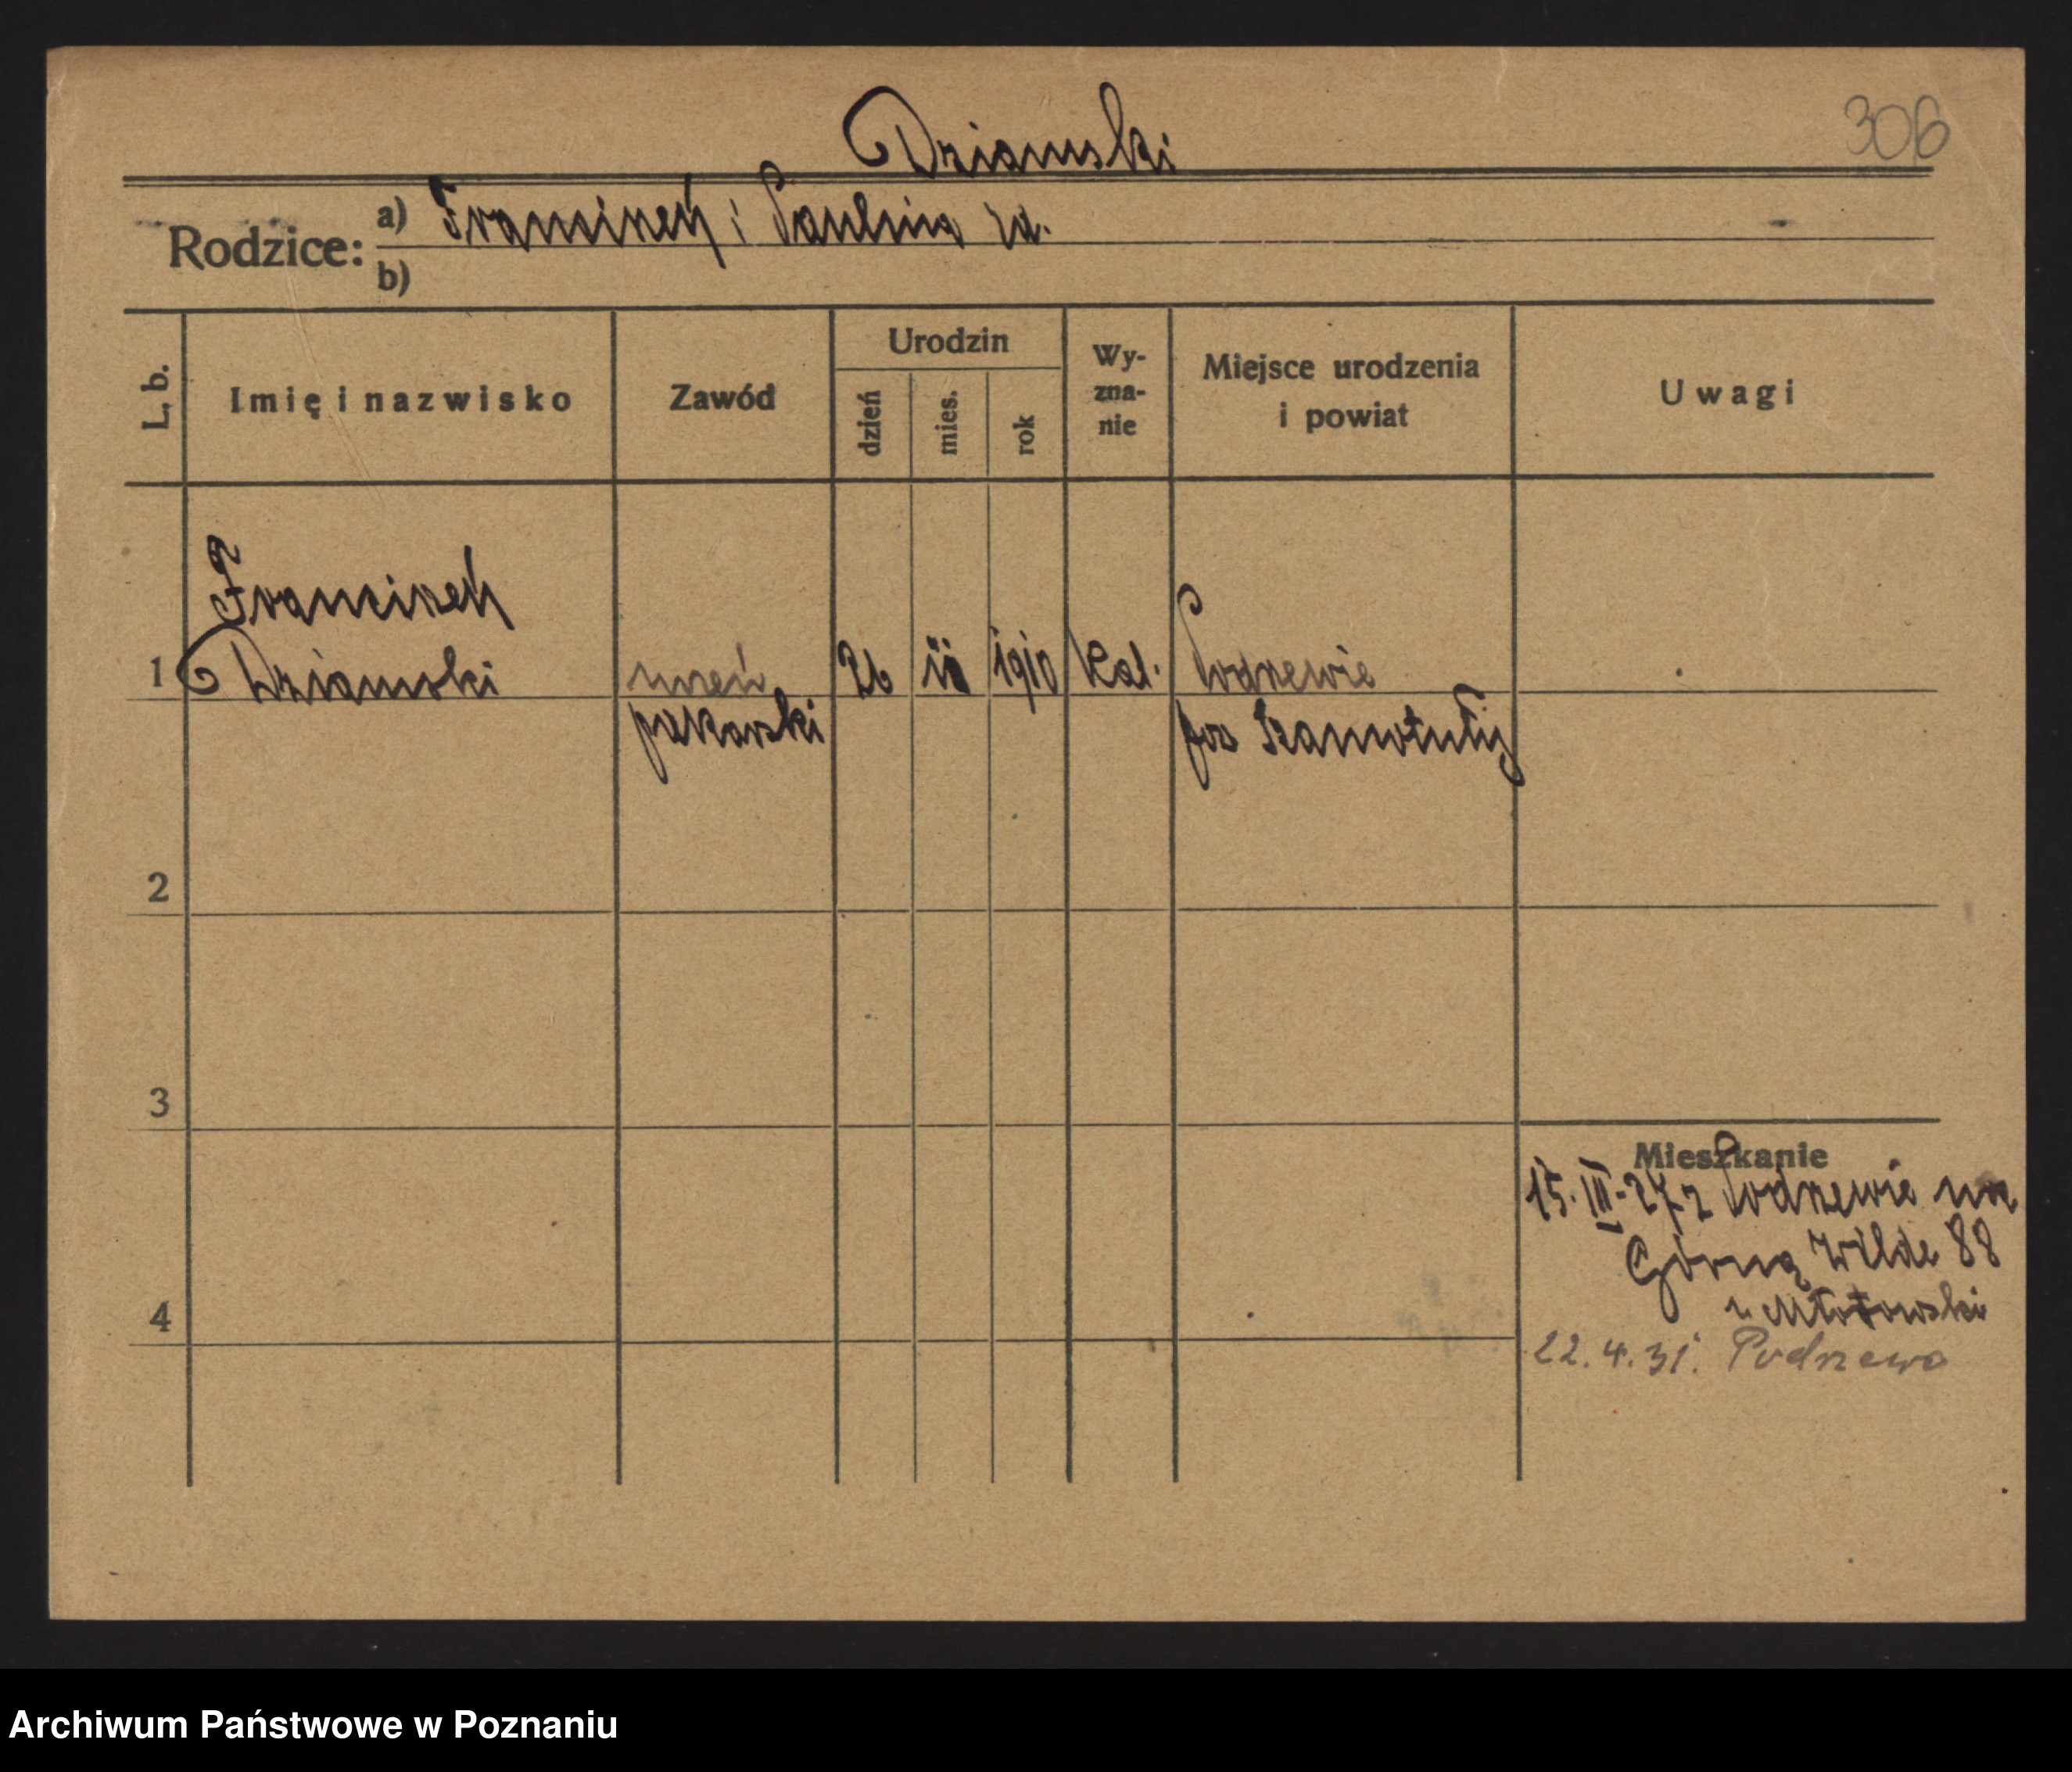 Dziamski
306
Rodzice: a) Franciszek i Paulina zd.
b)
L. b. Imię i nazwisko Zawód Urodzin dzień mies. rok Wy-zna-nie Miejsce urodzenia i powiat Uwagi
Franciszek
1 Dziamski uczeń 26 ii 1910 kat. Podrzewie
piekarski pow Szamotuły
2
3
Mieszkanie
15.III.27 z Podrzewie na
Górną Wilde 88
u
4
22.4.31. Podrzewo
Archiwum Państwowe w Poznaniu